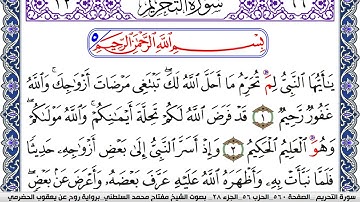 سورة التحريم
بِسْمِ اللَّهِ الرَّحْمَٰنِ الرَّحِيمِ
يَٰٓأَيُّهَا النَّبِيُّ لِمَ تُحَرِّمُ مَآ أَحَلَّ اللَّهُ لَكَ ۖ تَبْتَغِي مَرْضَاتَ أَزْوَٰجِكَ ۚ وَاللَّهُ
غَفُورٌ رَّحِيمٌ ١ قَدْ فَرَضَ اللَّهُ لَكُمْ تَحِلَّةَ أَيْمَٰنِكُمْ ۚ وَاللَّهُ مَوْلَىٰكُمْ ۖ
وَهُوَ الْعَلِيمُ الْحَكِيمُ ٢ وَإِذْ أَسَرَّ النَّبِيُّ إِلَىٰ بَعْضِ أَزْوَٰجِهِۦ حَدِيثًا
فَلَمَّا نَبَّأَتْ بِهِۦ وَأَظْهَرَهُ اللَّهُ عَلَيْهِ عَرَّفَ بَعْضَهُۥ وَأَعْرَضَ عَنۢ بَعْضٍ ۖ
سورة التحريم الصفحة ٥٦٠ الحزب ٥٦ الجزء ٢٨ بصوت الشيخ مفتاح محمد السلطني برواية روح عن يعقوب الحضرمي